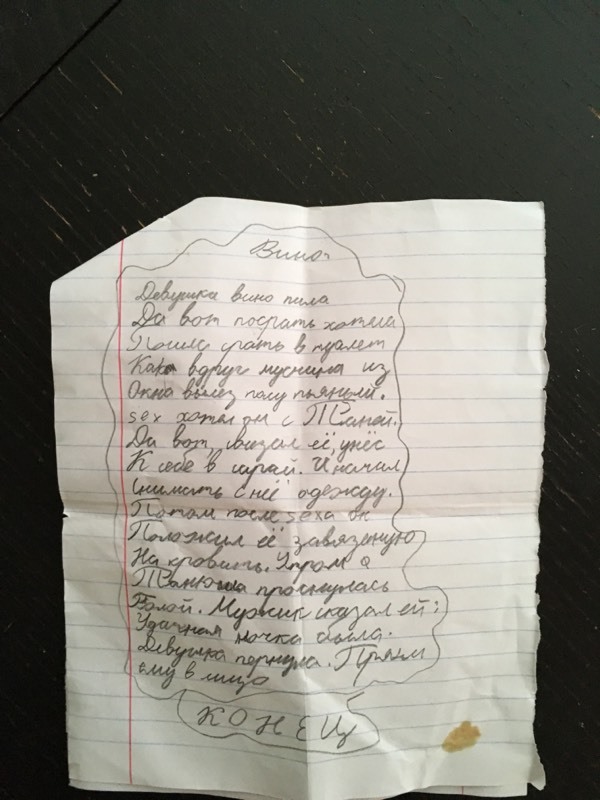 Вино
Девушка вино пила
Да вот посрать хотела
Пошла срать в туалет
Как вдруг мусчина из
Окна вылез полу пьяный.
sex хотел он с Таней.
Да вот, связал её, унёс
К себе в сарай. И начал
Снимать с неё одежду.
Потом после sexа он
Положил её завязеную
На кровать. Утром
Танюша проснулась
Голой. Мужик сказал ей:
Удачная ночка была.
Девушка пернула. Прямо
ему в лицо
КОНЕЦ